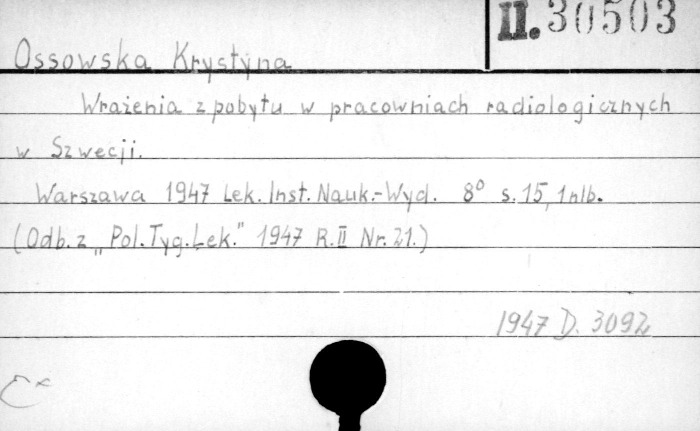 II. 30503
Ossowska Krystyna
Wrażenia z pobytu w pracowniach radiologicznych
w Szwecji.
Warszawa 1947 Lek. Inst. Nauk.-Wyd. 8° s. 15, 1 nlb.
(Odb. z „Pol. Tyg. Lek." 1947 R. II Nr. 21.)
1947 D. 3092